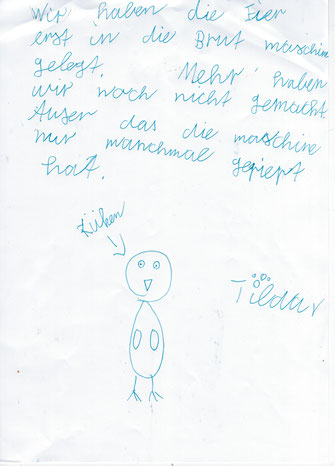 Wir haben die Eier
erst in die Brut maschine
gelegt. Mehr haben
wir noch nicht gemacht
Auser das die maschine
nur manchmal gepiept
hat.
Küken